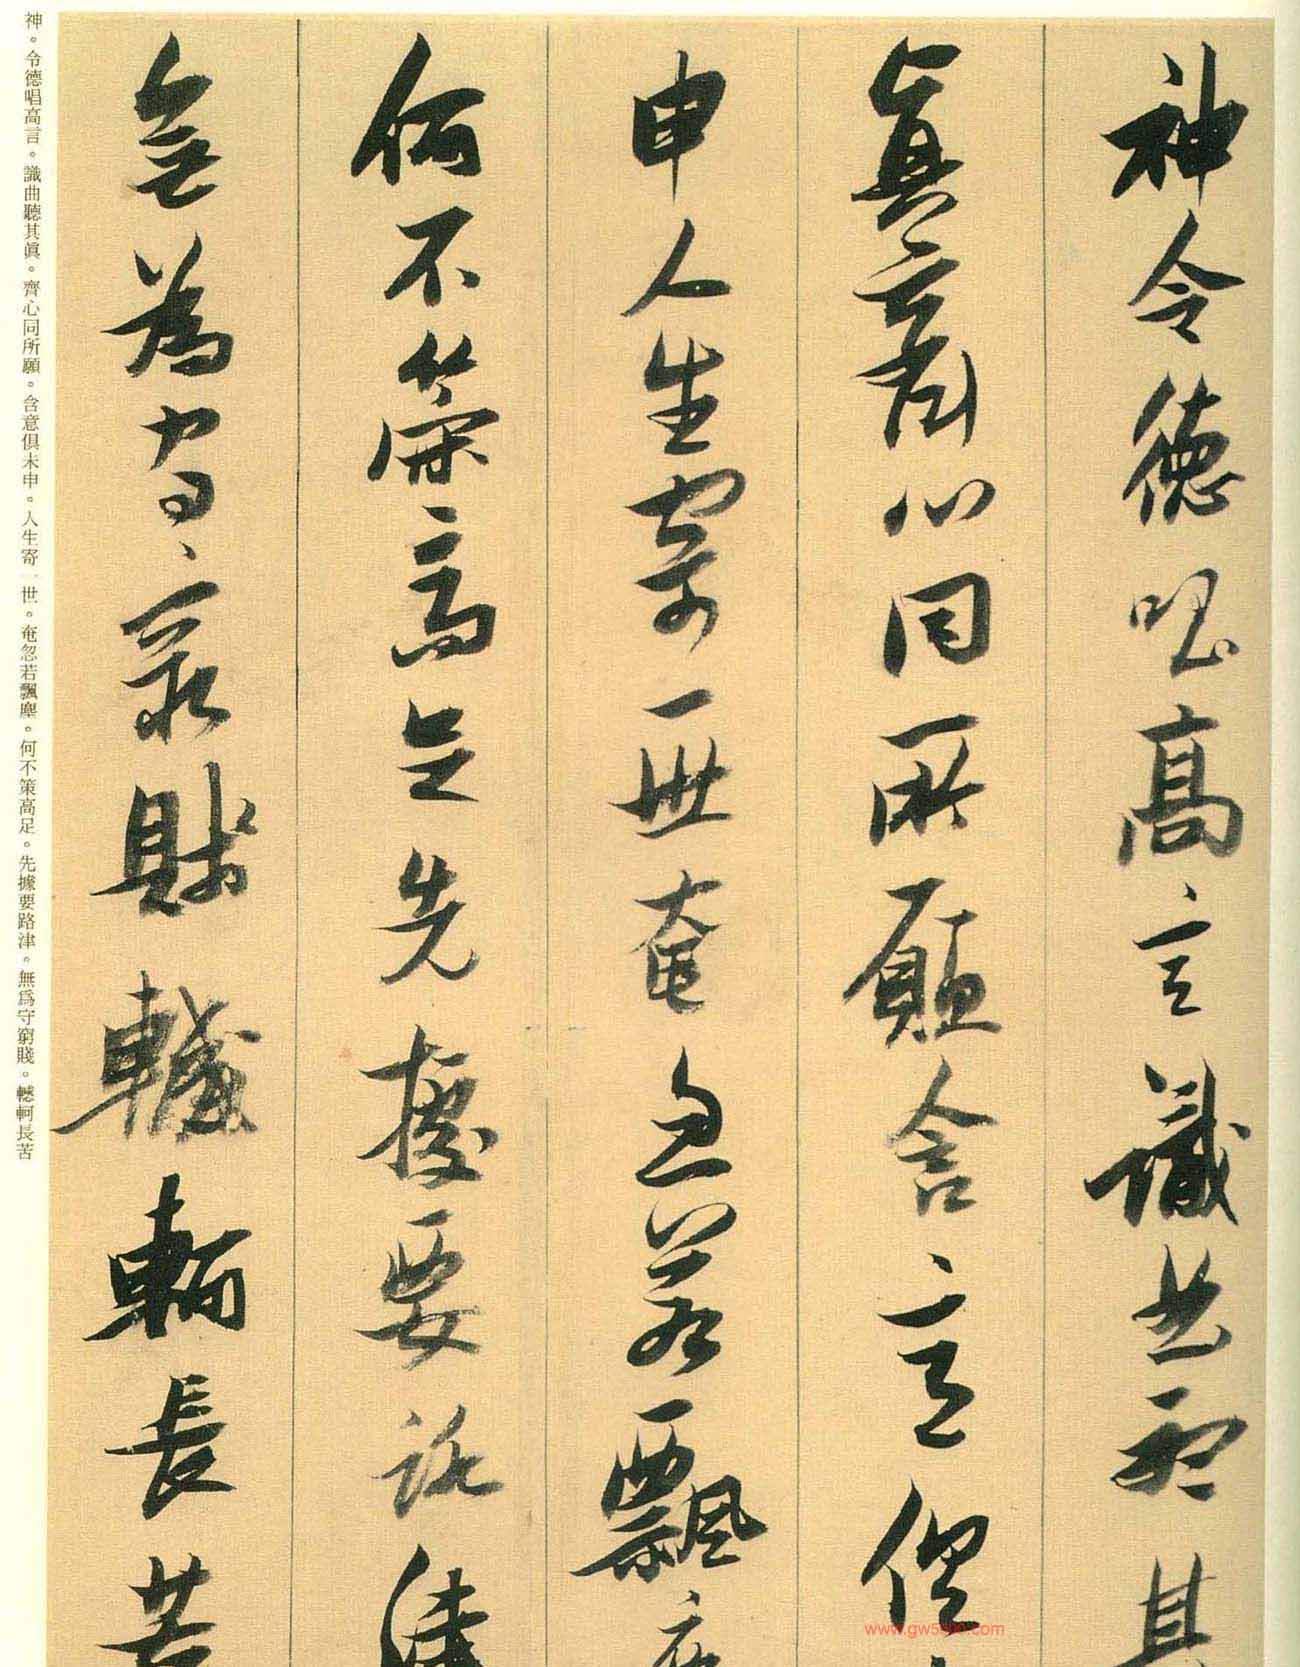 神令德唱高言識曲聽其
真齊心同所願含意俱
申人生寄一世奄忽若飄塵
何不策高足先據要路津
無為守窮賤轗軻長苦
神。令德唱高言。識曲聽其眞。齊心同所願。含意俱未申。人生寄一世。奄忽若飄塵。何不策高足。先據要路津。無爲守窮賤。轗軻長苦